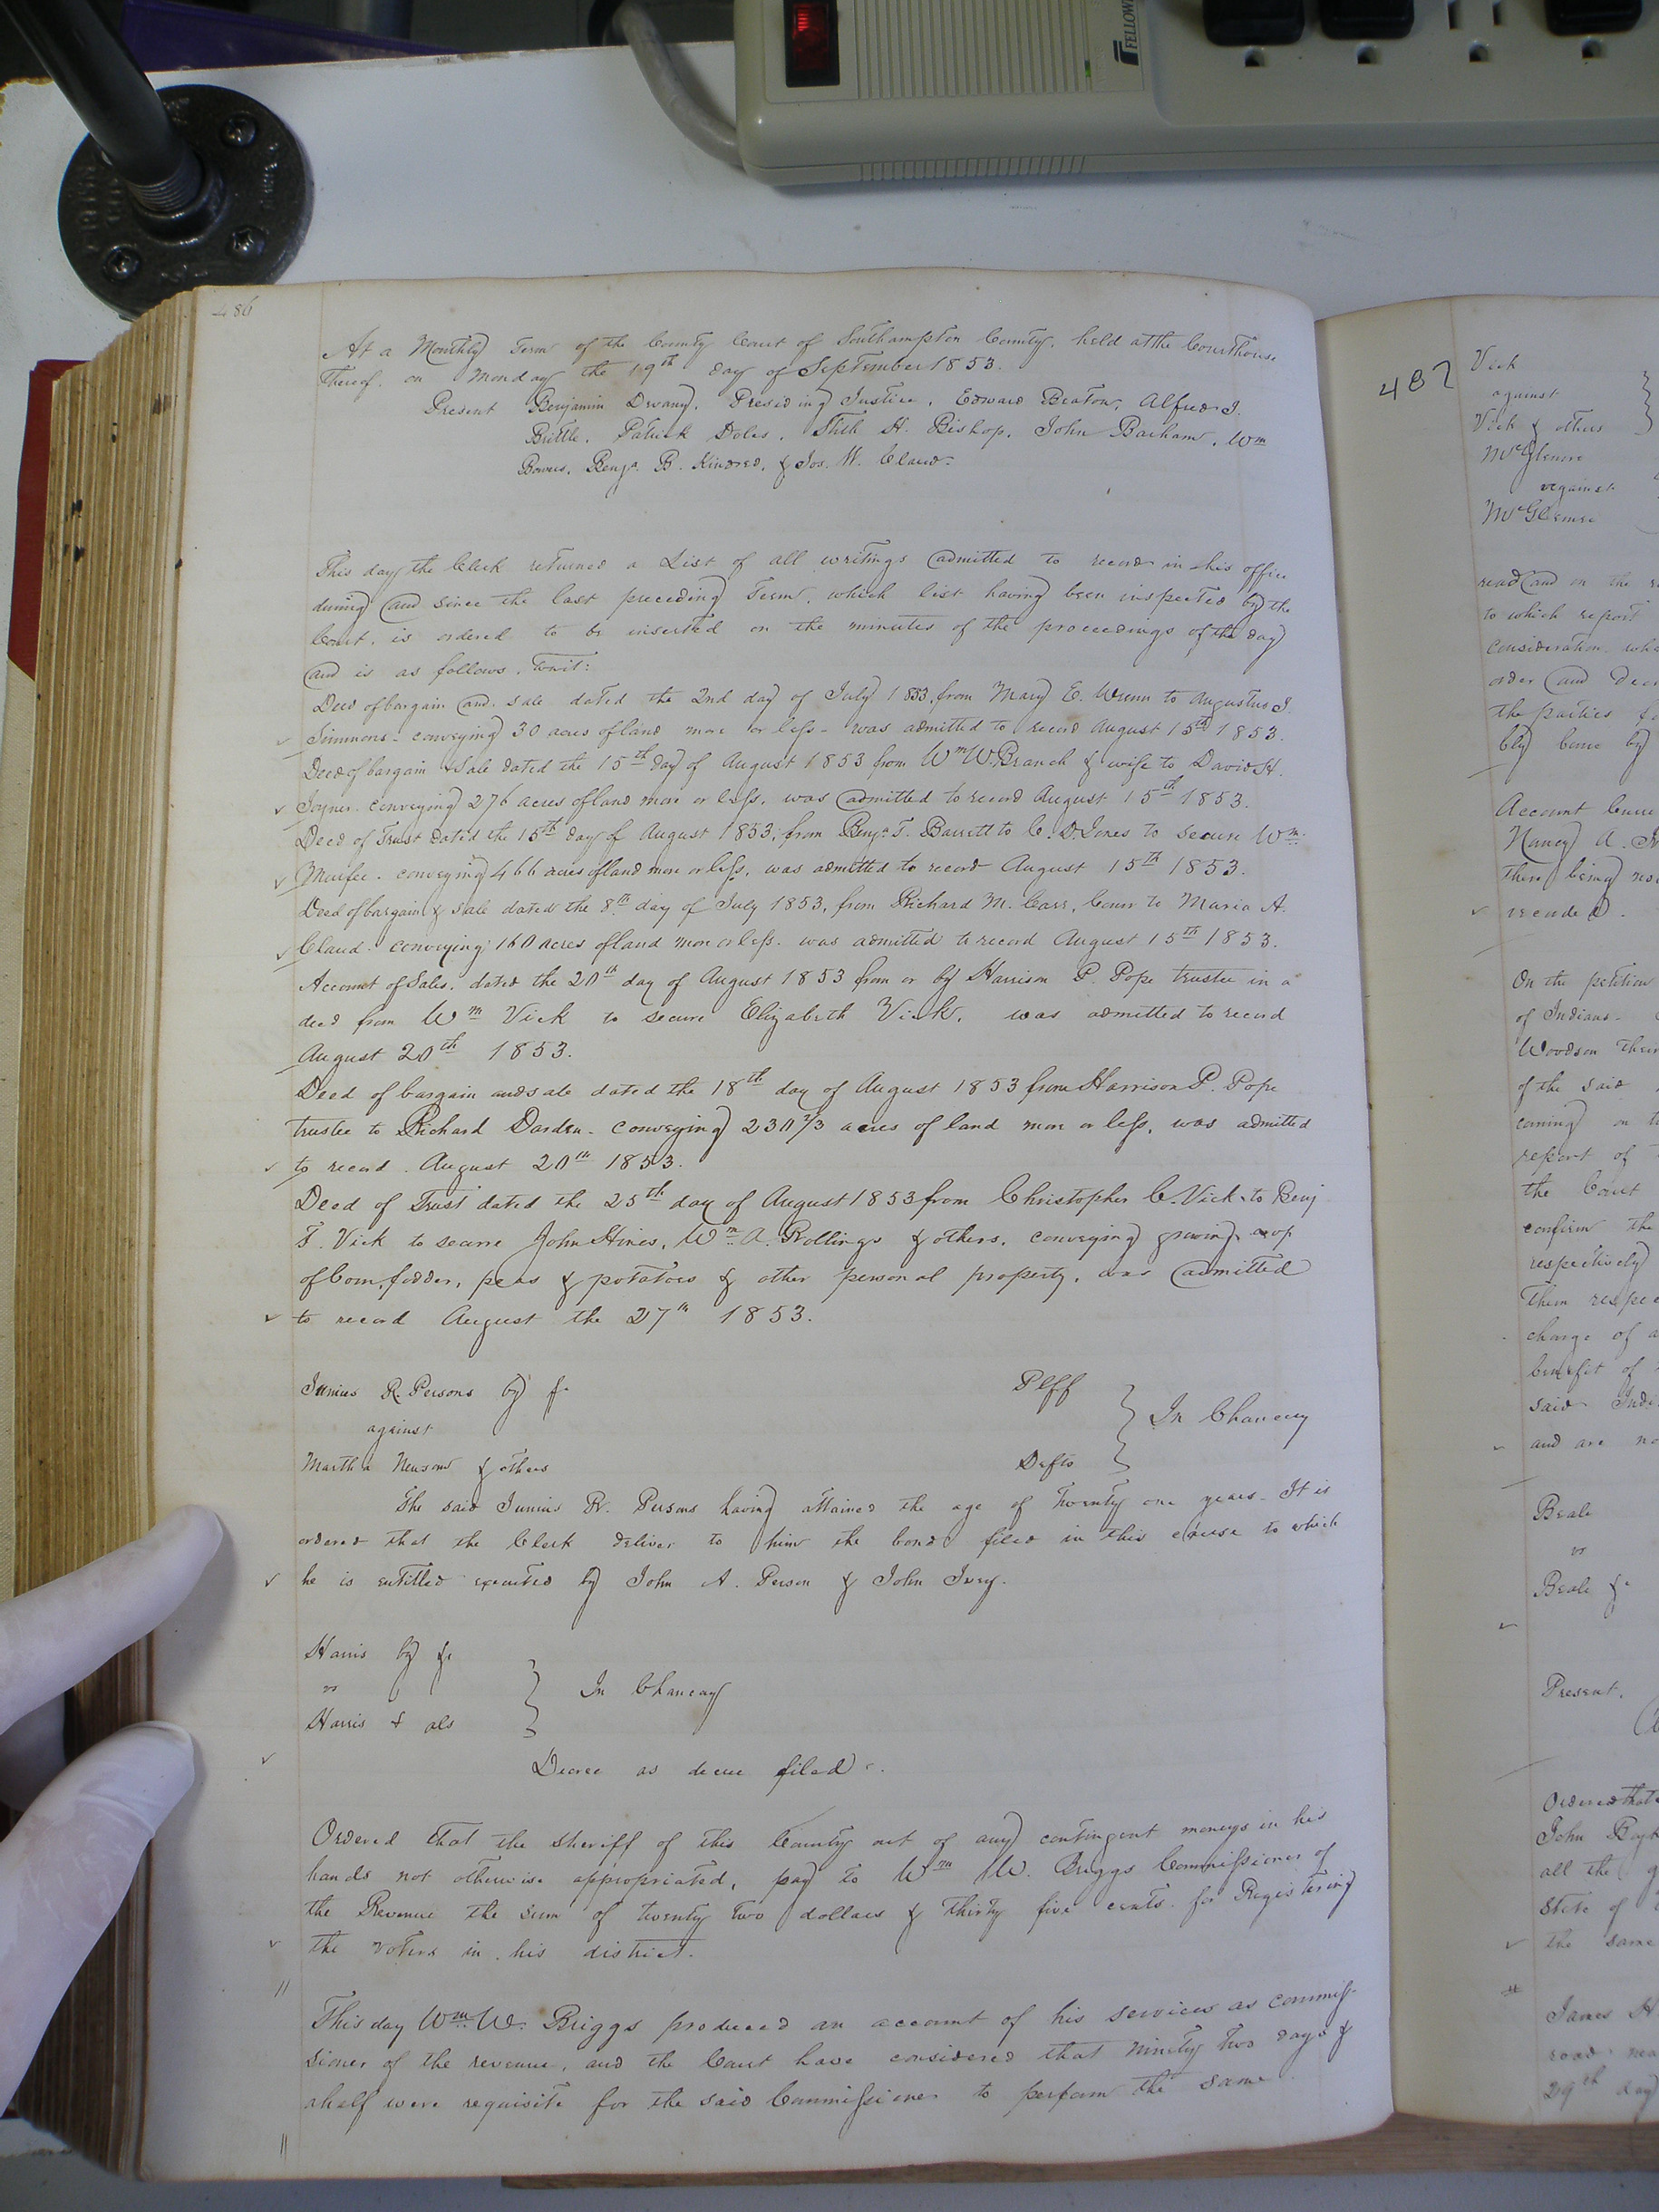 FELLOW
486
At a Monthly Term of the County Court of Southampton County, held at the Courthouse
thereof, on Monday the 19th day of September 1853.
Present Benjamin Devany, Presiding Justice, Edward Beaton, Alfred J.
Brittle, Patrick Doles, Stith H. Bishop, John Barham, Wm
Bowers, Benja. B. Kindred, & Jos. W. Claud.
This day the Clerk returned a List of all writings admitted to record in his office
during and since the last preceding Term, which list having been inspected by the
Court, is ordered to be inserted on the minutes of the proceedings of the day
and is as follows, towit:
Deed of bargain and sale dated the 2nd day of July 1853, from Mary E. to Augustus J.
Simmons - conveying 30 acres of land more or less - was admitted to record August 15th 1853.
Deed of bargain & Sale dated the 15th day of August 1853 from Wm W. Branch & wife to David H.
Joyner - conveying 276 acres of land more or less, was admitted to record August 15th 1853.
Deed of Trust dated the 15th day of August 1853, from Benja. T. Barrett to C. D. Jones to secure Wm.
Murfee - conveying 466 acres of land more or less, was admitted to record August 15th 1853.
Deed of bargain & sale dated the 8th day of July 1853, from Richard M. Carr, Comr to Maria A.
Claud - conveying 160 acres of land more or less - was admitted to record August 15th 1853.
Account of Sales, dated the 20th day of August 1853 from or by Harrison P. Pope trustee in a
deed from Wm Vick to secure Elizabeth Vick, was admitted to record
August 20th 1853.
Deed of bargain and sale dated the 18th day of August 1853 from Harrison P. Pope
trustee to Richard Darden - conveying 230 2/3 acres of land more or less, was admitted
to record August 20th 1853.
Deed of Trust dated the 25th day of August 1853 from Christopher C. Vick to Benj
F. Vick to secure John Hines, Wm A. Rollings & others, conveying growing crop
of Corn, fodder, peas & potatoes & other personal property, was admitted
to record August the 27th 1853.
Junius R. Persons by &c Plff
against } In Chancery
Martha Newsom & others Defts
The said Junius R. Persons having attained the age of Twenty one years - It is
ordered that the Clerk deliver to him the bond filed in this cause to which
he is entitled executed by John A. Person & John Ivey.
Harris by &c
vs } In Chancery
Harris & als
Decree as decree filed.
Ordered that the Sheriff of this County out of any contingent moneys in his
hands not otherwise appropriated, pay to Wm W. Briggs Commissioner of
the Revenue the sum of twenty two dollars & thirty five cents for Registering
the voters in his district.
This day Wm. W. Briggs produced an account of his services as commis-
sioner of the revenue, and the Court have considered that ninety two days &
a half were requisite for the said Commissioner to perform the same.
487
Vick
against
Vick & others
McGlemre
against
McGlemre
read and on the
to which report
consideration
order and
the parties
bly
Account
Nancy A.
there being
recorded.
On the petition
of Indiana
Woodson their
of the said
coming on
report of
the Court
confirm the
respectively
them
charge of a
benefit of
said
and are
Beale
vs
Beale &c
Present,
Ordered that
John
all the
State of
the same
James H
road
29th day